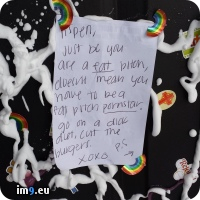 just bc you
are a fat bitch,
doesnt mean you
have to be a
fat bitch pornstar.
go on a diet
cut the
burgers.
xoxo
im9.eu